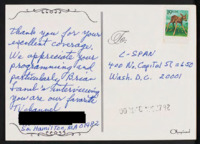 Thank you for your
excellent coverage.
We appreciate your
programming and
particularly Brian
Lamb's interviewing
you are our favorite
TV channel.
So. Hamilton, MA 01982
To:
C-SPAN
400 No. Capitol St, #650
Wash. D.C. 20001